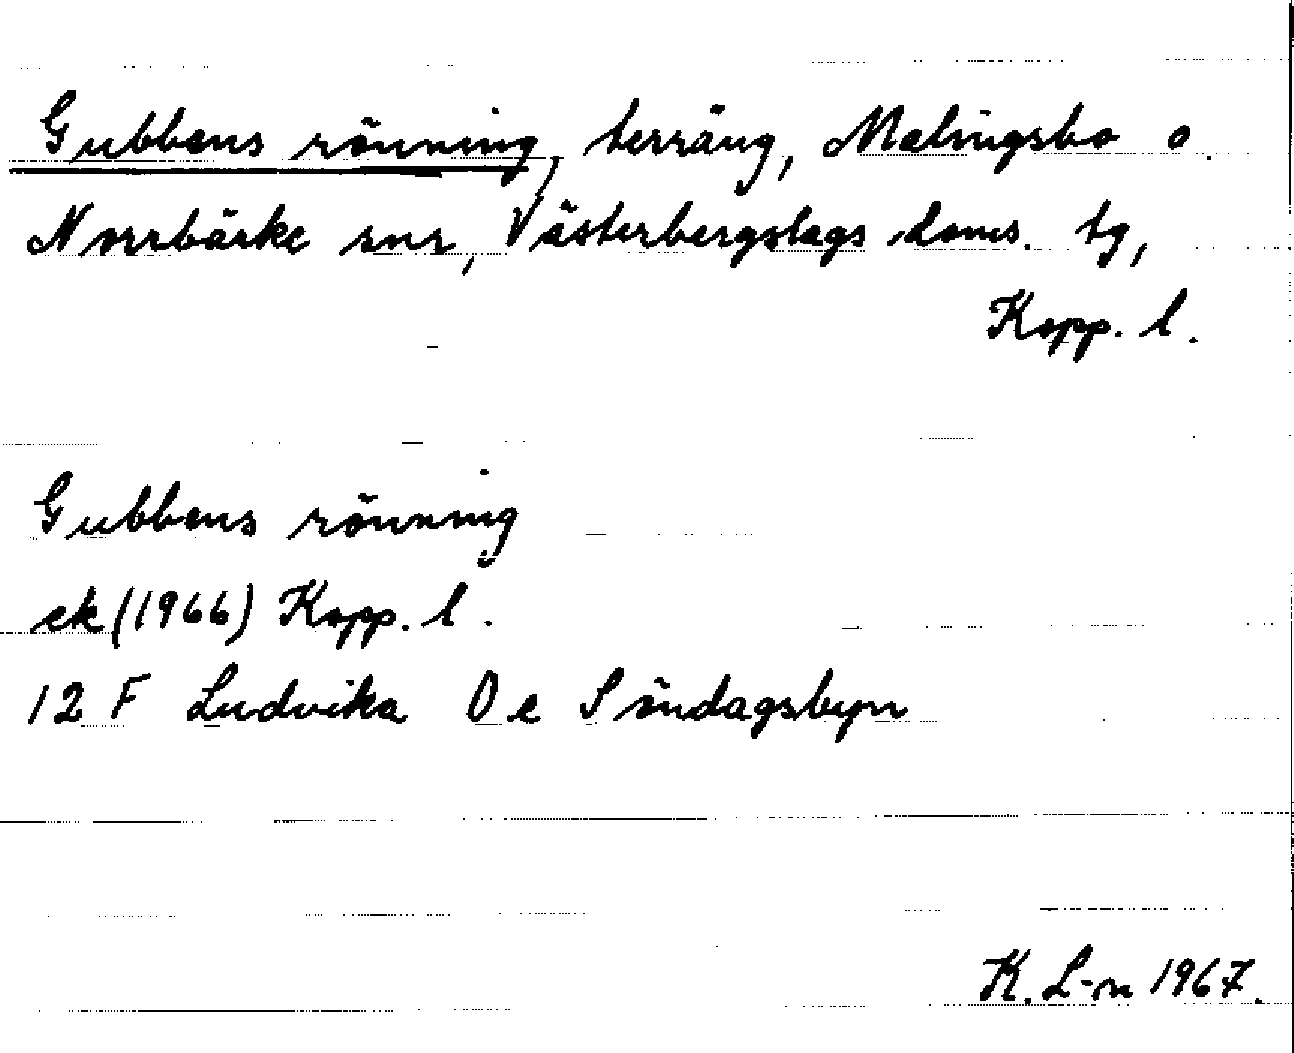 Gubbens rönning, terräng, Malingsbo o.
Norrbärke snr, Västerbergslags doms. tg,
Kopp. l.
Gubbens rönning
ek (1966) Kopp. l.
12 F Ludvika 0 e Söndagsbyn
K. L-n 1967.